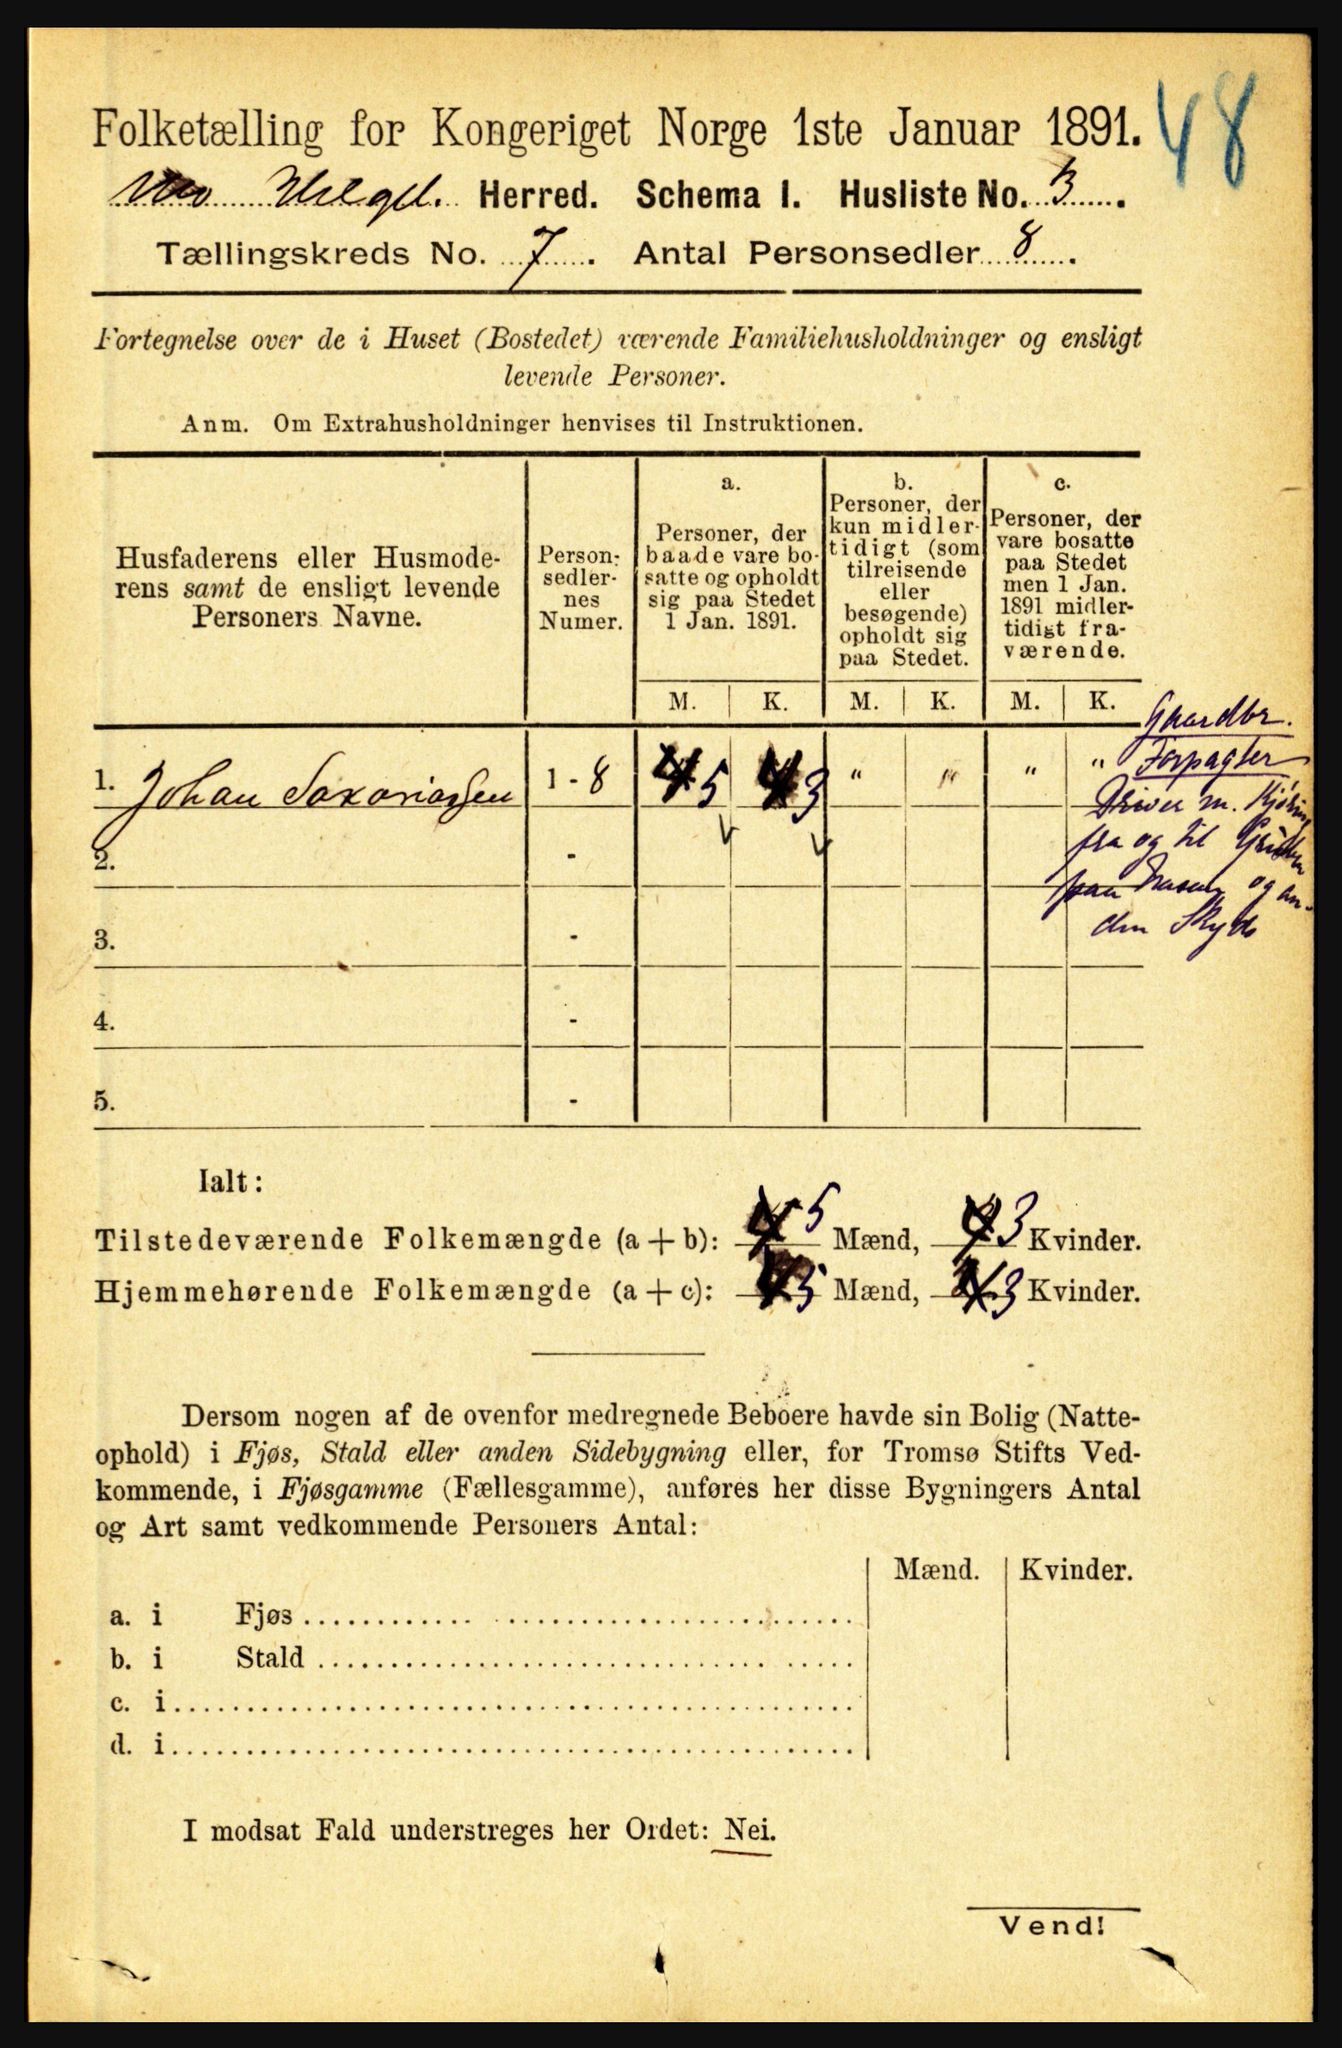 48
Folketælling for Kongeriget Norge 1ste Januar 1891.
Herred. Schema I. Husliste No. 3.
Tællingskreds No. 7. Antal Personsedler 8.
Fortegnelse over de i Huset (Bostedet) værende Familiehusholdninger og ensligt
levende Personer.
Anm. Om Extrahusholdninger henvises til Instruktionen.
Husfaderens eller Husmode-
rens samt de ensligt levende
Personers Navne.
Person-
sedler-
nes
Numer.
a.
Personer, der
baade vare bo-
satte og opholdt
sig paa Stedet
1 Jan. 1891.
b.
Personer, der
kun midler-
tidigt (som
tilreisende
eller
besøgende)
opholdt sig
paa Stedet.
c.
Personer, der
vare bosatte
paa Stedet
men 1 Jan.
1891 midler-
tidigt fra-
værende.
M. K. M. K. M. K.
Gaardbr.
1. Johan Saxariassen 1 - 8 4 5 4 3 " " " " Forpagter
Driver m. Kjøring
fra og til
2. -
paa og an-
den Skyds
3. -
4. -
5. -
Ialt:
Tilstedeværende Folkemængde (a + b): 4 5 Mænd, 4 3 Kvinder.
Hjemmehørende Folkemængde (a + c): 4 5 Mænd, 4 3 Kvinder.
Dersom nogen af de ovenfor medregnede Beboere havde sin Bolig (Natte-
ophold) i Fjøs, Stald eller anden Sidebygning eller, for Tromsø Stifts Ved-
kommende, i Fjøsgamme (Fællesgamme), anføres her disse Bygningers Antal
og Art samt vedkommende Personers Antal:
Mænd. Kvinder.
a. i Fjøs
b. i Stald
c. i
d. i
I modsat Fald understreges her Ordet: Nei.
Vend!